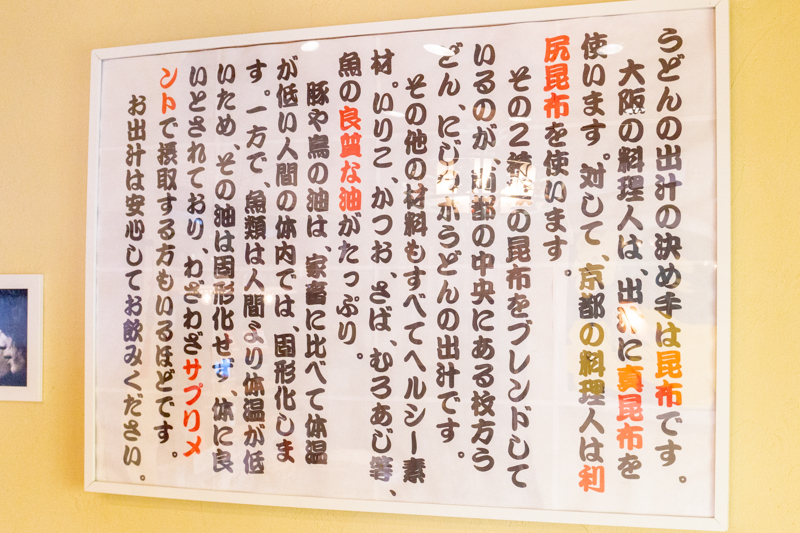 うどんの出汁の決め手は昆布です。
大阪の料理人は、出汁に真昆布を
使います。対して、京都の料理人は利
尻昆布を使います。
その2種類の昆布をブレンドして
いるのが、京都の中央にある枚方う
どん、にじのかうどんの出汁です。
その他の材料もすべてヘルシー素
材。いりこ、かつお、さば、むろあじ等、
魚の良質な油がたっぷり。
豚や鳥の油は、家畜に比べて体温
が低い人間の体内では、固形化しま
す。一方で、魚類は人間より体温が低
いため、その油は固形化せず、体に良
いとされており、わざわざサプリメ
ントで摂取する方もいるほどです。
お出汁は安心してお飲みください。